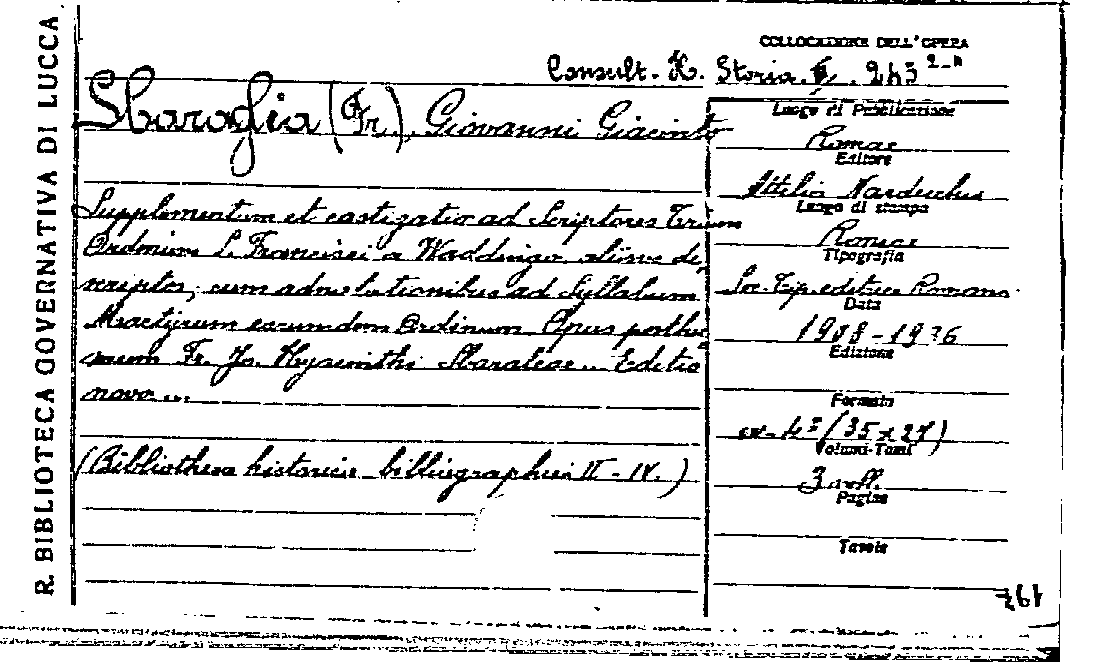 R. BIBLIOTECA GOVERNATIVA DI LUCCA
COLLOCAZIONE DELL'OPERA
Consult. K. Storia. 243 2-4
Sbaraglia (Fr.) Giovanni Giacinto
Supplementum et castigatio ad Scriptores Trium
Ordinum S. Francisci a Waddingo, aliisve de
scriptos; cum adnotationibus ad Syllabum
Martyrum eorumdem Ordinum. Opus posthu
mum Fr. Jo. Hyacinthi Sbaraleae... Editio
nova ...
(Bibliotheca historico-bibliographica II-IV.)
Luogo di Pubblicazione
Romae
Editore
Attilio Nardecchia
Luogo di stampa
Romae
Tipografia
Soc. Tip. editrice Romana
Data
1908-1936
Edizione
Formato
in-4° (35x27)
Volumi-Tomi
3 voll.
Pagine
Tavole